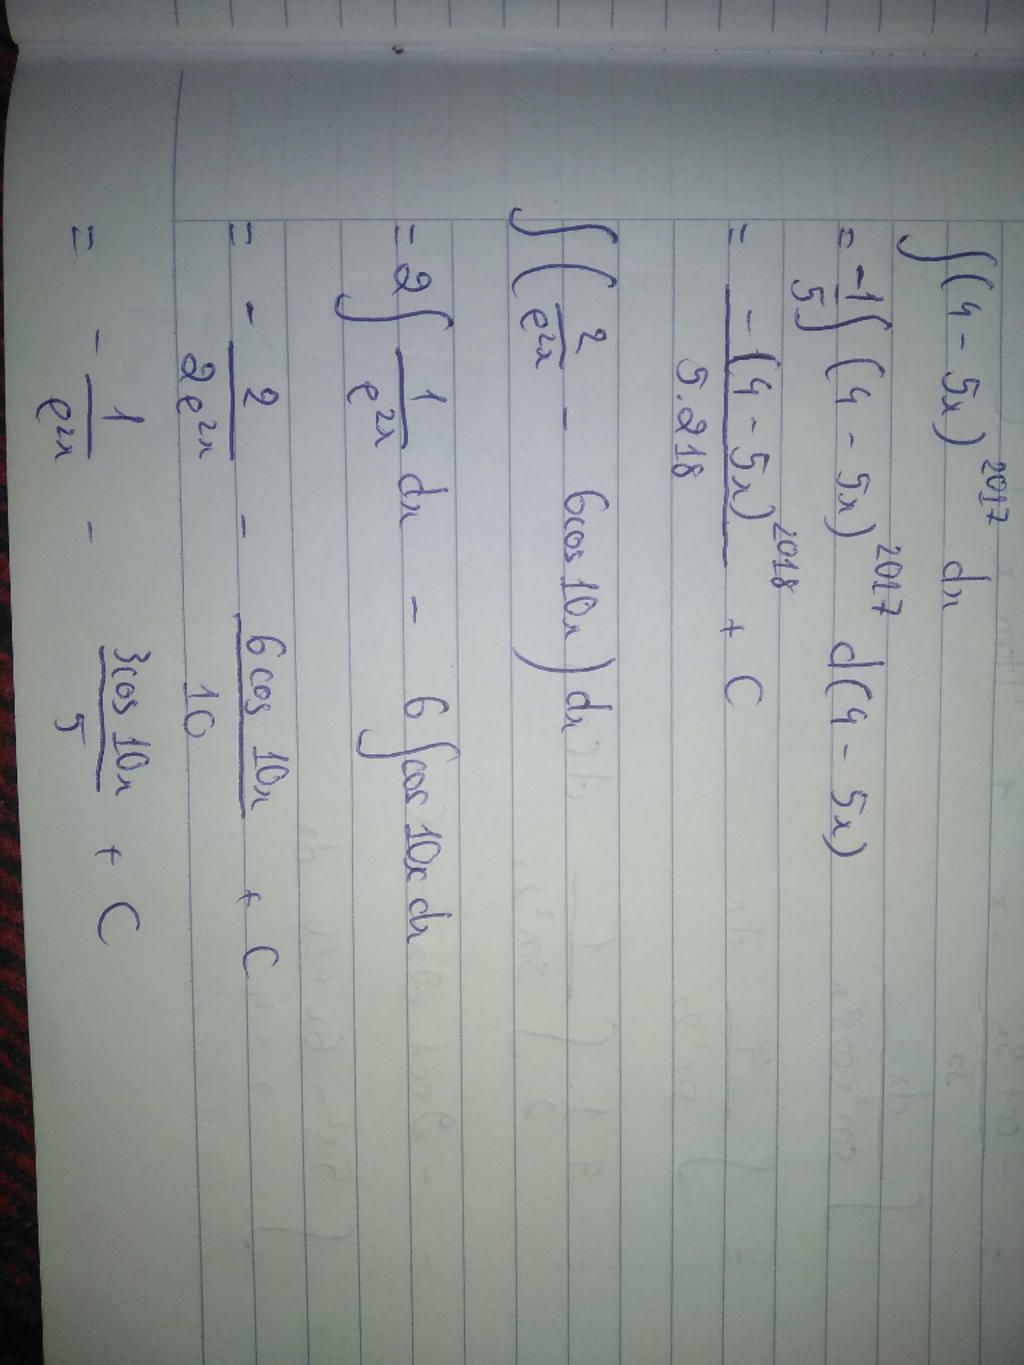 ∫(4 - 5x)^2017 dx
= -1/5 ∫(4 - 5x)^2017 d(4 - 5x)
= -(4 - 5x)^2018 / 5.218 + C
∫(2/e^2x - 6cos 10x) dx
= 2∫ 1/e^2x dx - 6∫cos 10x dx
= - 2/2e^2x - 6cos 10x/10 + C
= - 1/e^2x - 3cos 10x/5 + C